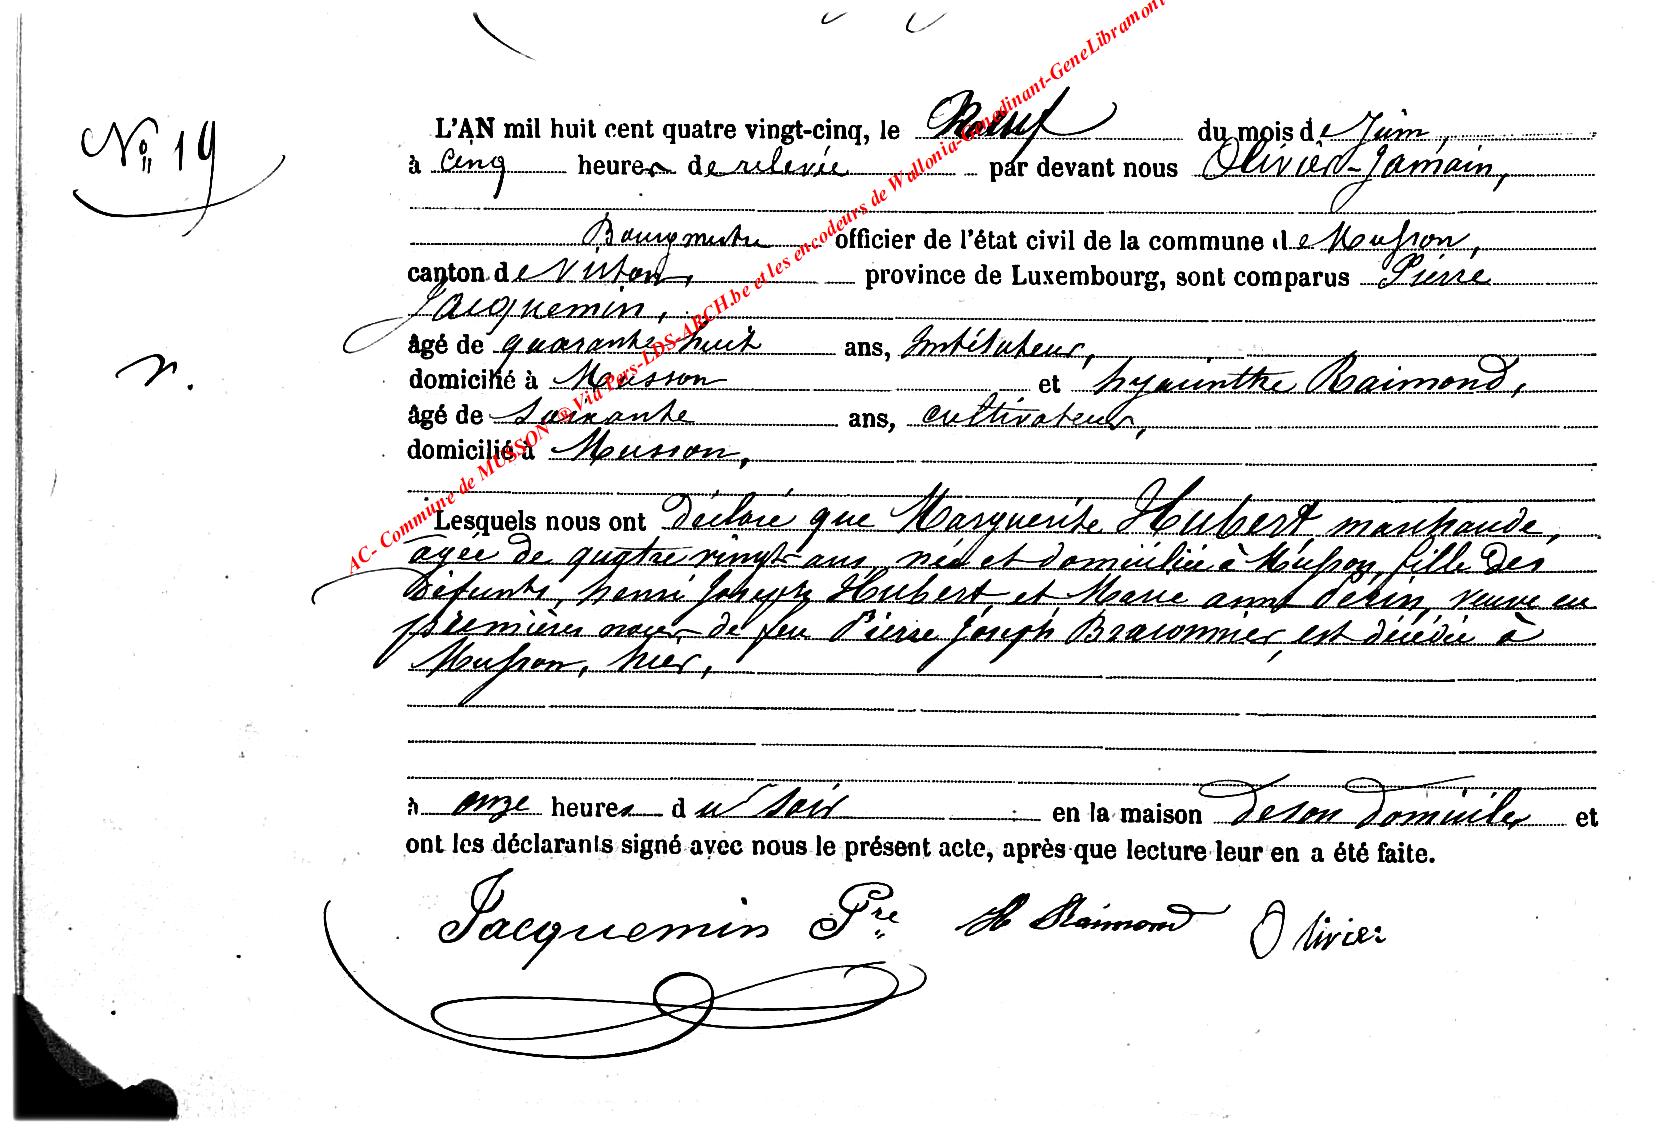 N° 19
L'AN mil huit cent quatre vingt-cinq, le Neuf du mois de Juin,
à cinq heures de relevée par devant nous Olivier-Jamain,
Bourgmestre officier de l'état civil de la commune de Musson,
canton de Virton, province de Luxembourg, sont comparus Pierre
Jacquemin,
âgé de quarante huit ans, Instituteur,
domicilié à Musson et hyacinthe Raimond,
âgé de Soixante ans, cultivateur,
domicilié à Musson,
Lesquels nous ont déclaré que Marguerite Hubert, marchande,
âgée de quatre vingt ans, née et domiciliée à Musson, fille des
défunts, henri Joseph Hubert, et Marie anne, veuve en
premières noces de feu Pierre Joseph Braconnier, est décédée à
Musson, hier,
à onze heures du soir en la maison de son domicile, et
ont les déclarants signé avec nous le présent acte, après que lecture leur en a été faite.
Jacquemin Pre H Raimond Olivier
AC- Commune de MUSSON ® Via Pers-LDS-ARCH.be et les encodeurs de Wallonia-Genedinant-GeneLibramont